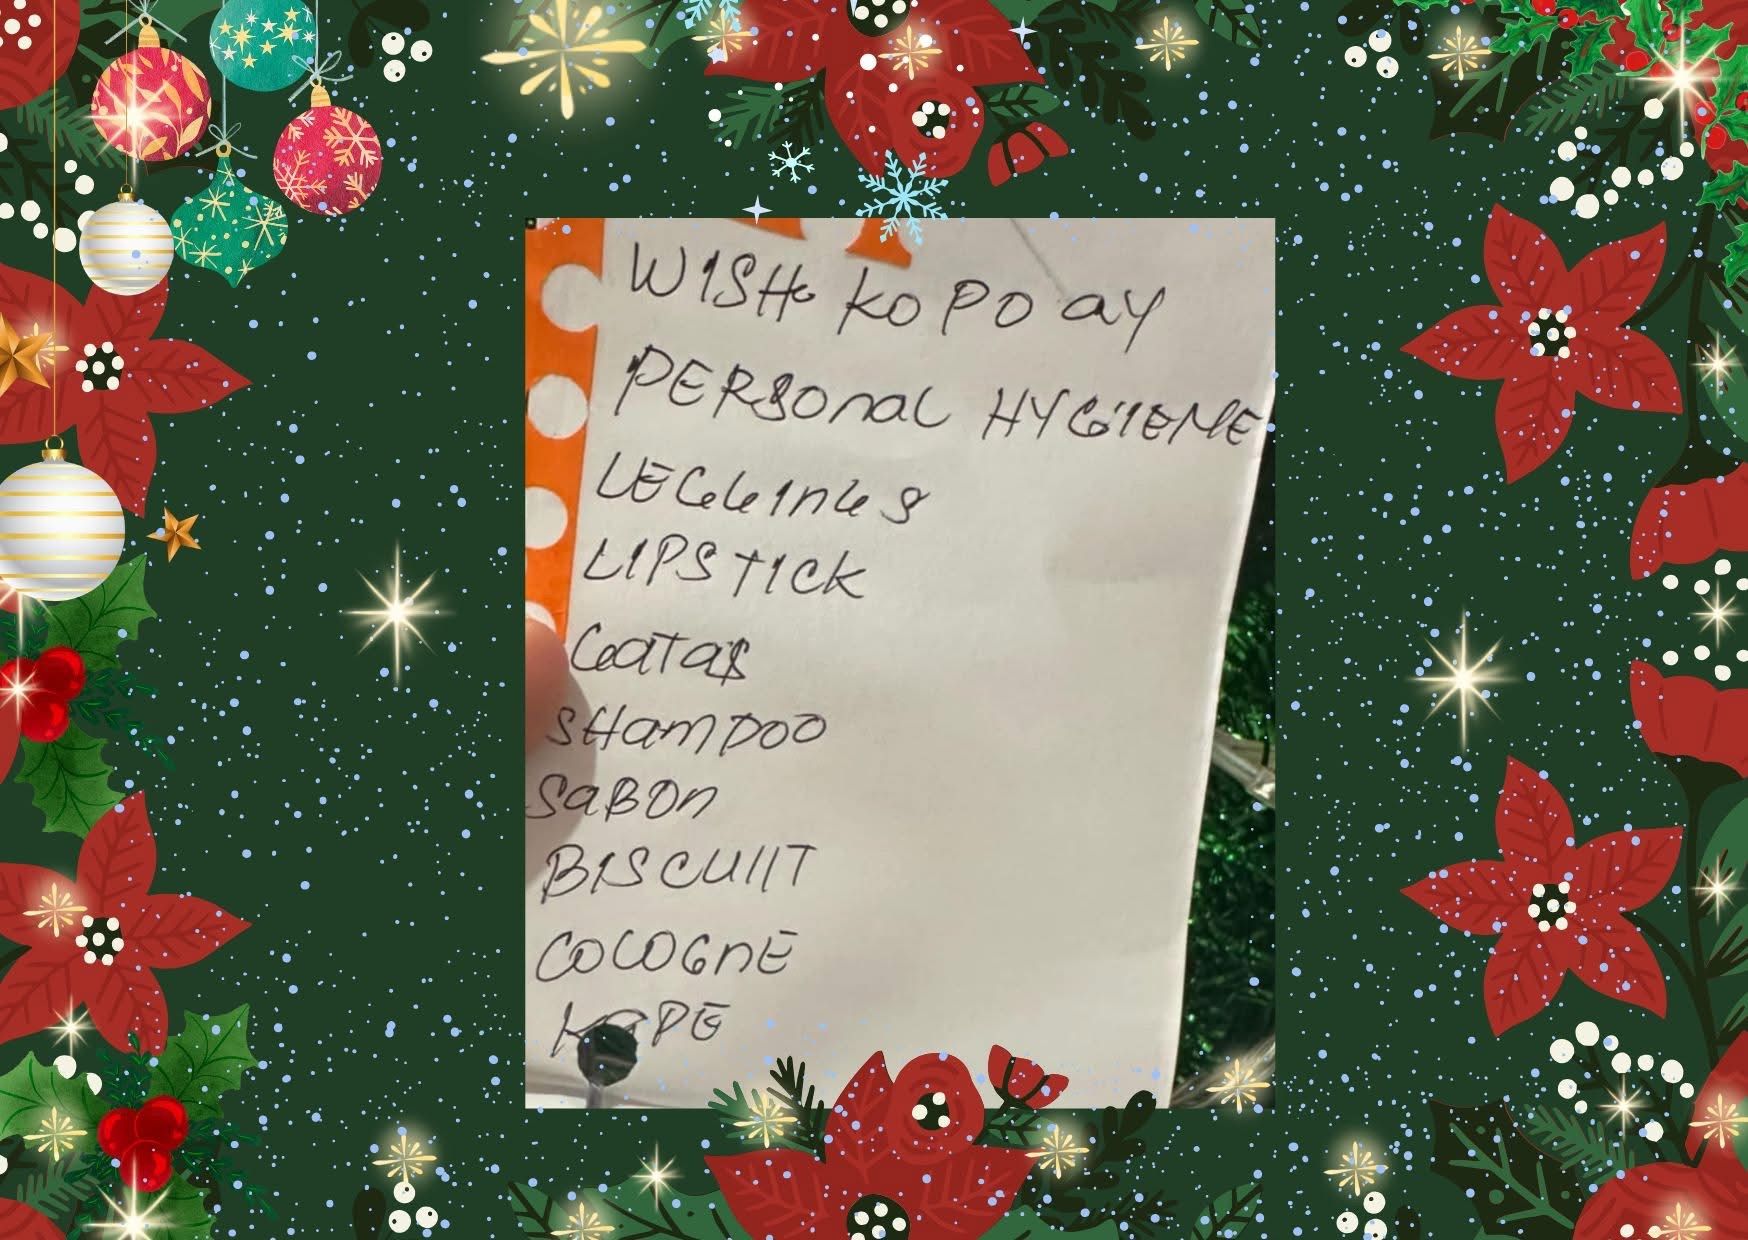 WISH KO PO AY
PERSONAL HYGIENE
LEGGINGS
LIPSTICK
GATAS
SHAMPOO
SABON
BISCUIIT
COLOGNE
KAPE